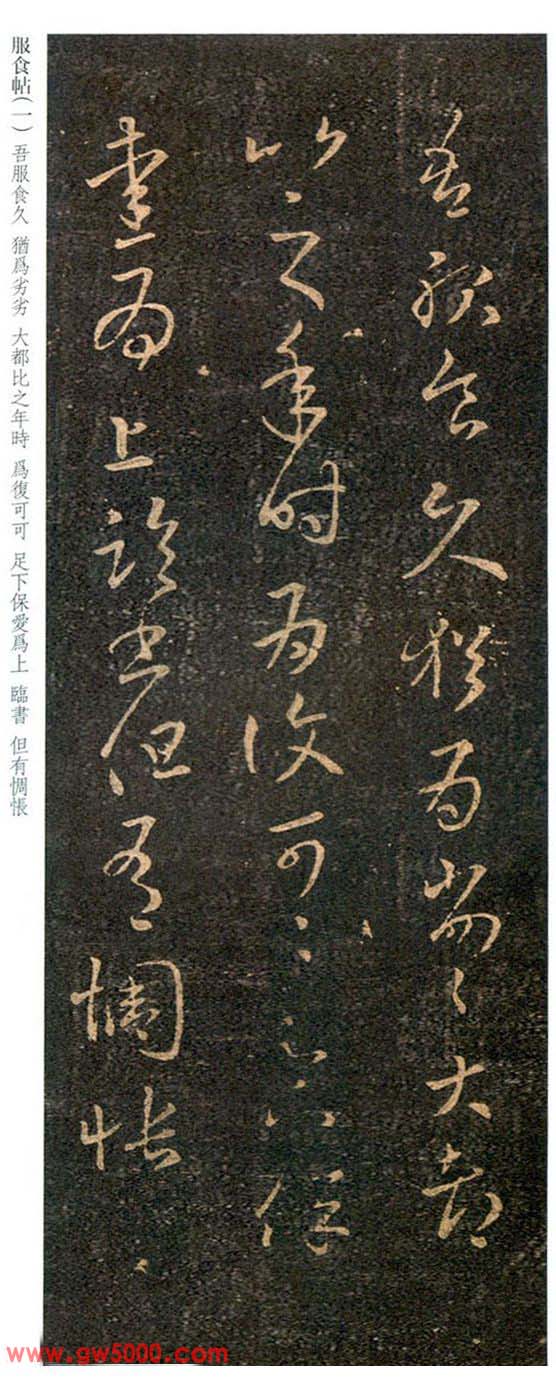 吾服食久猶為劣々大都
比之年時為復可々足下保
愛為上臨書但有惆悵
服食帖(一) 吾服食久 猶爲劣劣 大都比之年時 爲復可可 足下保愛爲上 臨書 但有惆悵
www.gw5000.com